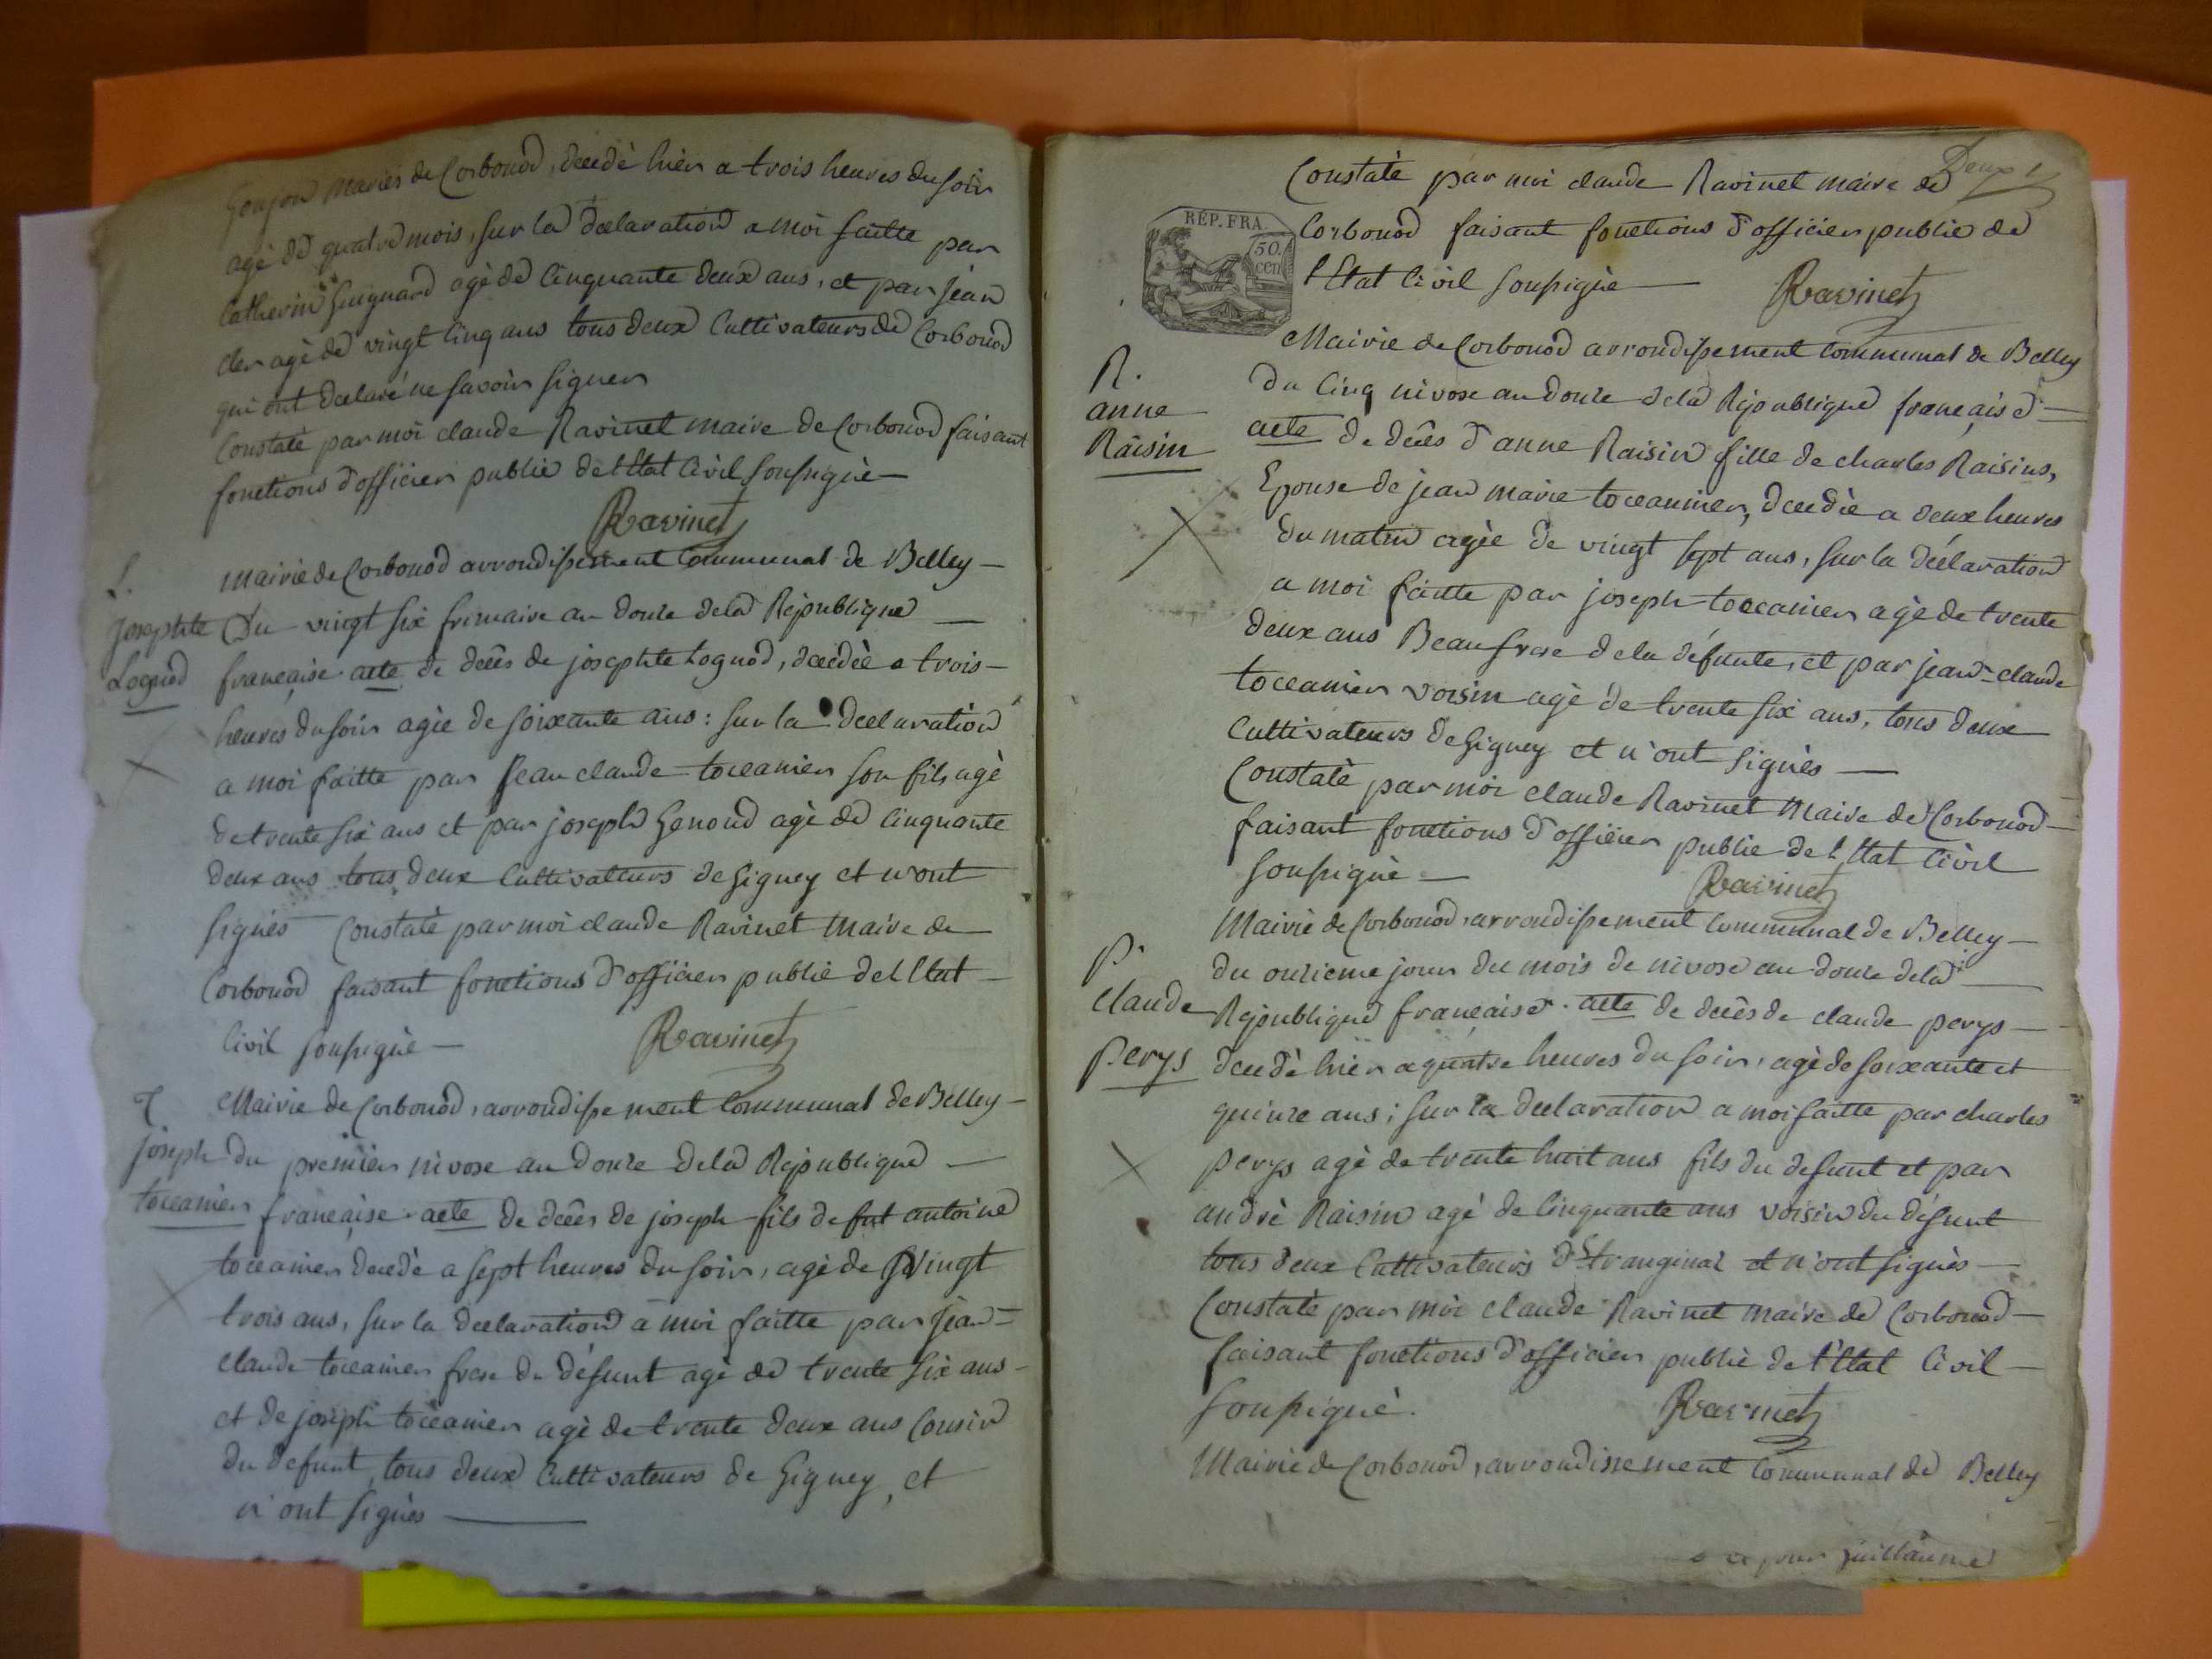 Goujon mariés de Corbonod, decedè hièr a trois heures du soir
agè de quatre mois, sur la declaration a moi faitte par
Catherin Guignard agè de Cinquante deux ans, et par jean
cler agè de vingt Cinq ans tous deux Cultivateurs de Corbonod
qui ont declaré ne savoir signer
Constatè par moi claude Ravinet maire de Corbonod faisant
fonctions d'officier public de l'Etat Civil soussignè
Ravinet
L.
Josephte
Lognod
mairie de Corbonod arrondissement Communal de Belley
Du vingt six frimaire an douze de la Republique
française acte de decès de josephte Lognod, decedèe a trois
heures du soir agèe de soixante ans : sur la declaration
a moi faitte par Jean claude toccanier son fils agè
de trente six ans et par joseph Genoud agè de Cinquante
deux ans tous deux Cultivatteurs de Gigney et n'ont
signés Constatè par moi claude Ravinet Maire de
Corbonod faisant fonctions d'officier public de l'Etat
Civil soussignè
Ravinet
T
joseph
toccanier
Mairie de Corbonod, arrondissement Communal de Belley
du premier nivose an douze de la Republique
française acte de decès de joseph fils de fut antoine
toccanier decedè a sept heures du soir, agè de vingt
trois ans, sur la declaration a moi faitte par jean=
claude toccanier frere du défunt agè de trente six ans
et de joseph toccanier agè de trente deux ans Cousin
du defunt, tous deux Cultivateurs de Gigney, et
n'ont signès
Deux
Constatè par moi claude Ravinet maire de
RÉP. FRA.
50.
cen
Corbonod faisant fonctions d'officier public de
l'Etat Civil soussignè
Ravinet
R.
anne
Raisin
Mairie de Corbonod arrondissement Communal de Belley
Du Cinq nivose an douze de la Republique française
acte de decès d'anne Raisin fille de charles Raisins,
Epouse de jean marie toccannier, decedèe a deux heures
du matin agèe de vingt sept ans, sur la déclaration
a moi faitte par joseph toccanier agè de trente
deux ans Beaufrere de la défunte, et par jean-claude
toccanier voisin agè de trente six ans, tous deux
Cultivateurs de Gigney et n'ont signès
Constatè par moi claude Ravinet Maire de Corbonod
faisant fonctions d'officier public de l'Etat Civil
soussignè
Ravinet
P.
claude
perys
Mairie de Corbonod, arrondissement Communal de Belley
du onzieme jour du mois de nivose an douze de la
Republique française. acte de decès de claude perys
decedè hièr a quatre heures du soir, agè de soixante et
quinze ans ; sur la declaration a moi faitte par charles
perys agè de trente huit ans fils du defunt et par
andrè Raisin agè de Cinquante ans voisin du défunt
tous deux Cultivateurs d'Etranginaz et n'ont signès
Constatè par moi claude Ravinet maire de Corbonod
faisant fonctions d'officier publiè de l'Etat Civil
soussignè.
Ravinet
Mairie de Corbonod, arrondissement Communal de Belley
jour guillaume